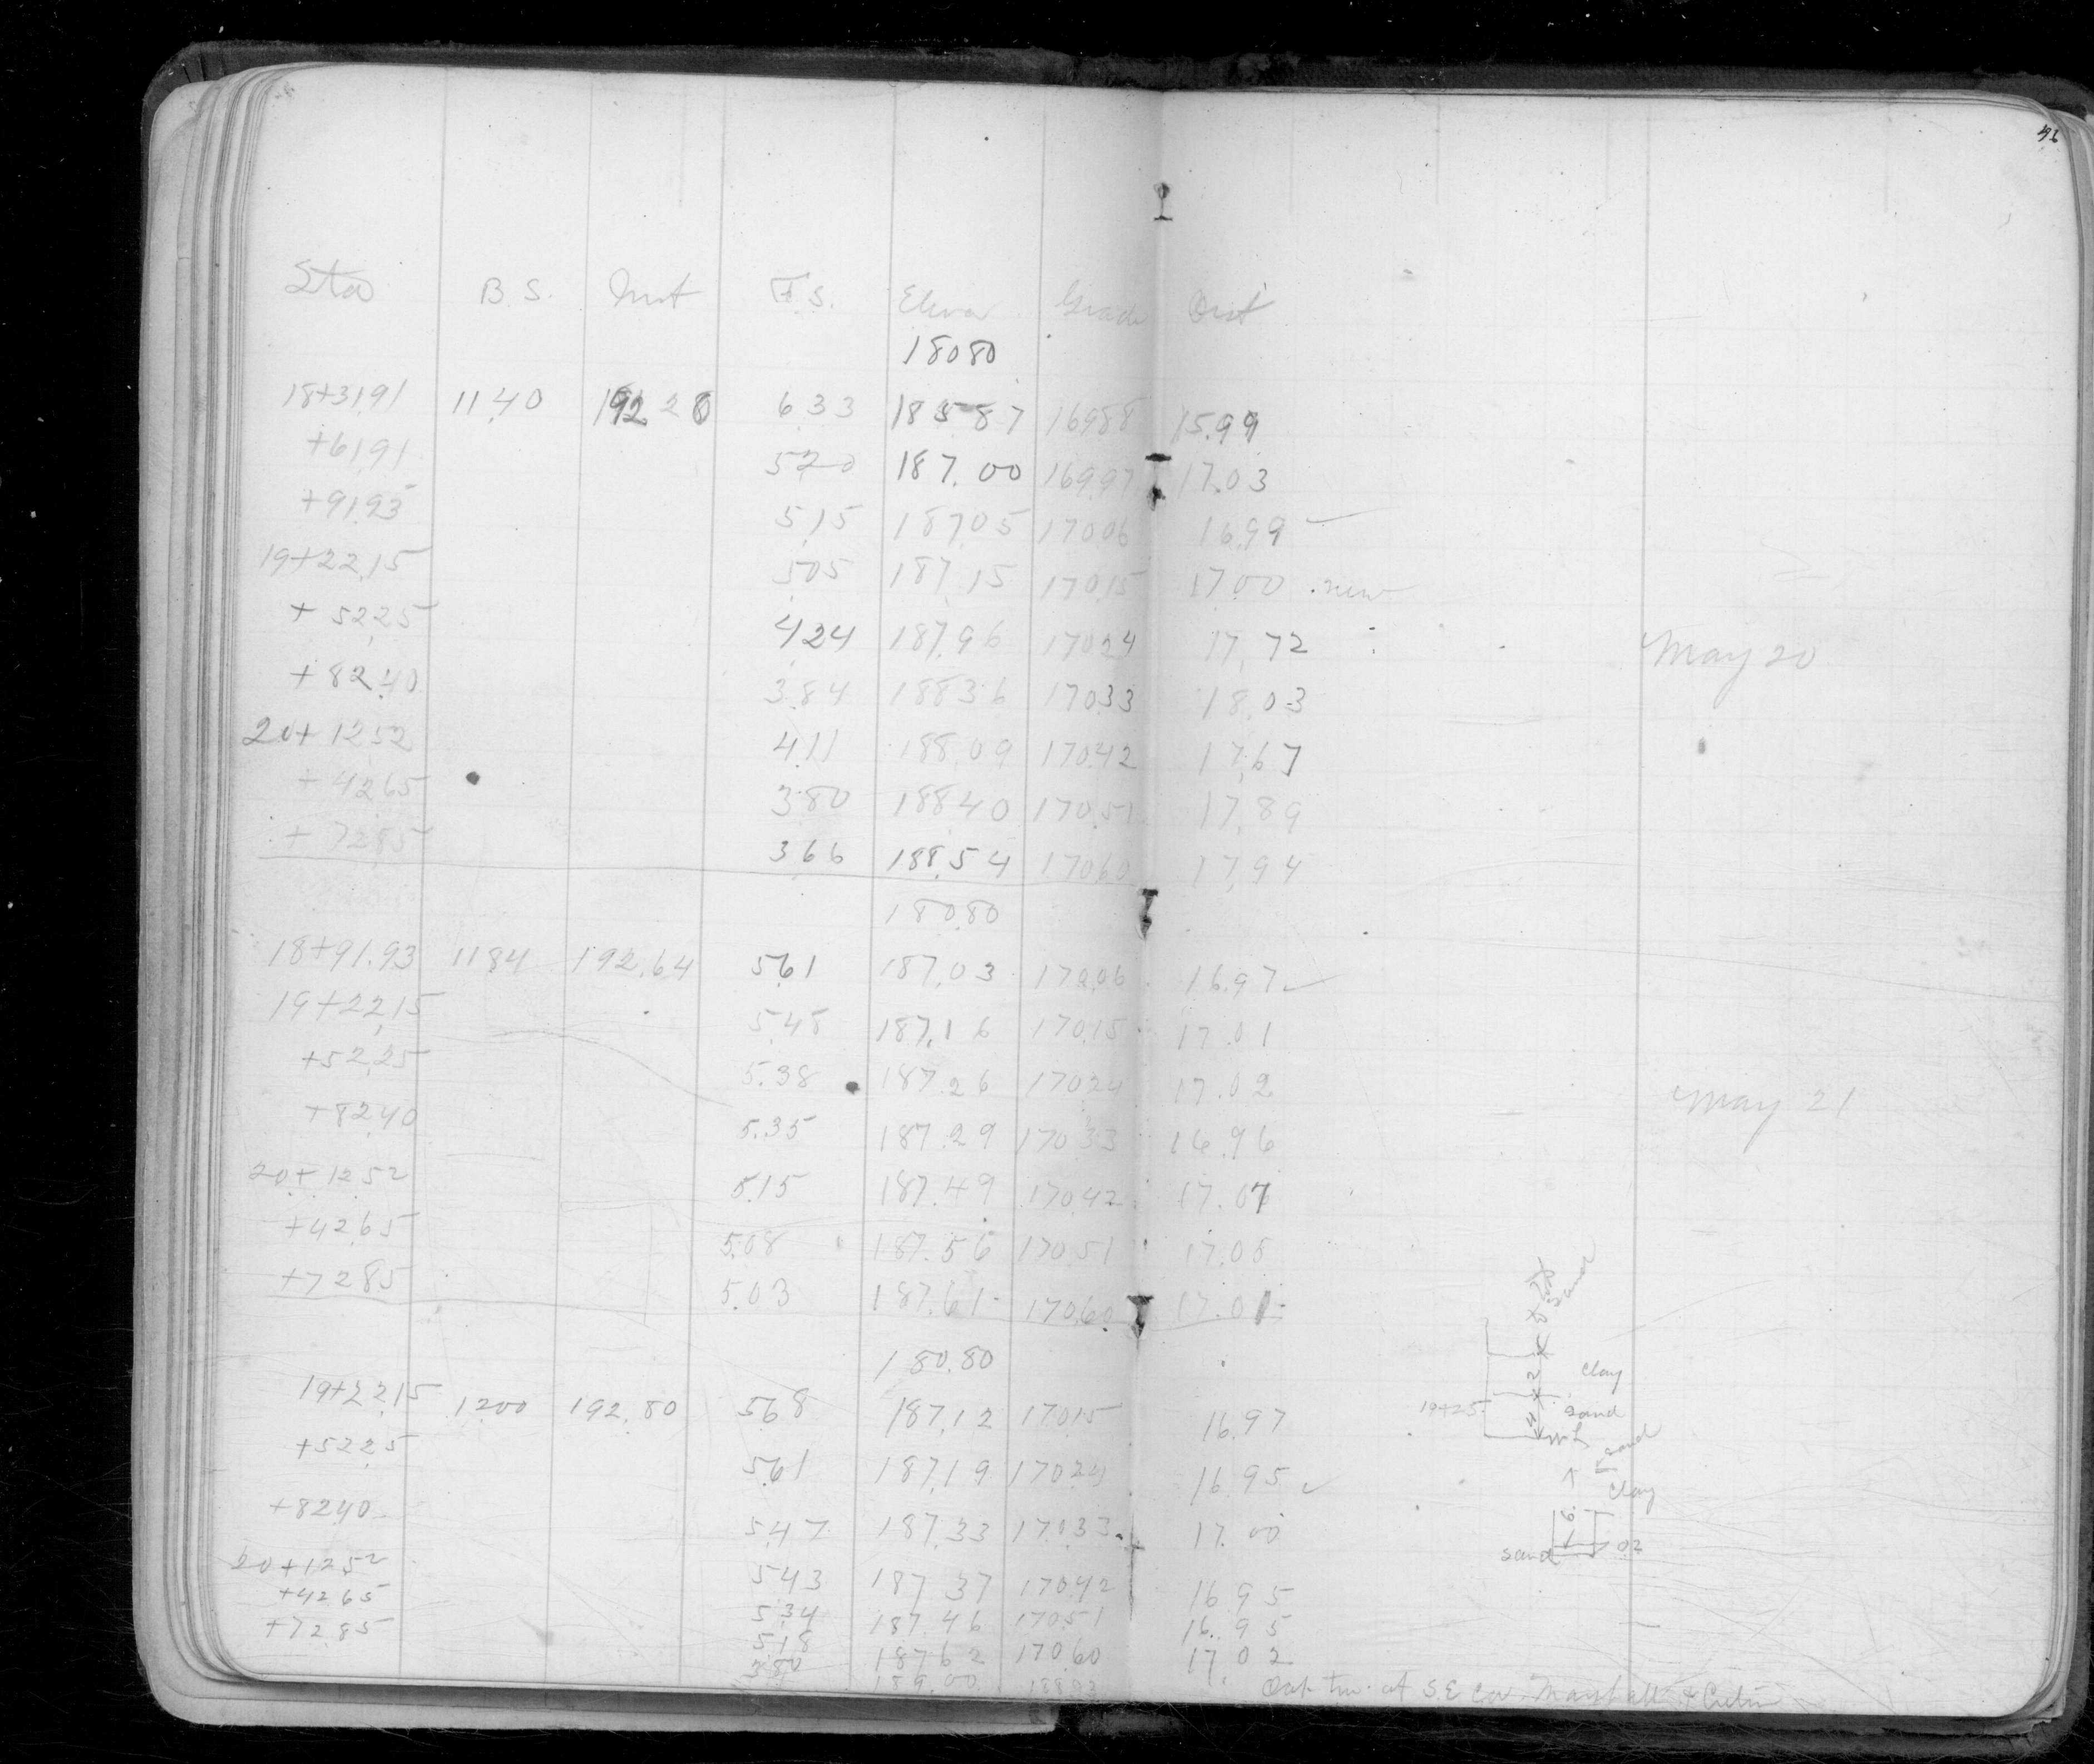 43
Sta B.S. Inst F.S. Eleva Grade Dist
180 80
18+31.91 11.40 192 20 6 33 185 87 169.88 15.99
+61.91 5 20 187.00 169.97 17.03
+91.93 5.15 187.05 170.06 16.99 ✓
19+22.15 5.05 187.15 170.15 17.00 new
+52.25 4.24 187.96 170.24 17.72 May 20
+82.40 3.84 188.36 170.33 18.03
20+12.52 4.11 188.09 170.42 17.67
+42.65 3.80 188.40 170.51 17.89
+72.85 3.66 188.54 170.60 17.94
180.80
18+91.93 11 84 192.64 5.61 187.03 170.06 16.97 ✓
19+22.15 5.48 187.16 170.15 17.01
+52.25 5.38 187.26 170.24 17.02 May 21
+82.40 5.35 187.29 170.33 16.96
20+12.52 5.15 187.49 170.42 17.07
+42.65 5.08 187.56 170.51 17.05
+72.85 5.03 187.61 170.60 17.01
sand
180.80
clay
19+22.15 12.00 192.80 5.68 187.12 170.15 16.97 19+25 sand
+52.25 5.61 187.19 170.24 16.95 ✓ sand
clay
+82.40 5.47 187.33 170.33 17.00
sand 02
20+12.52 5.43 187.37 170.42 16.95
+42.65 5.34 187.46 170.51 16.95
+72.85 5.18 187.62 170.60 17.02
3.80 189.00 at S.E. Cor. Marshall &